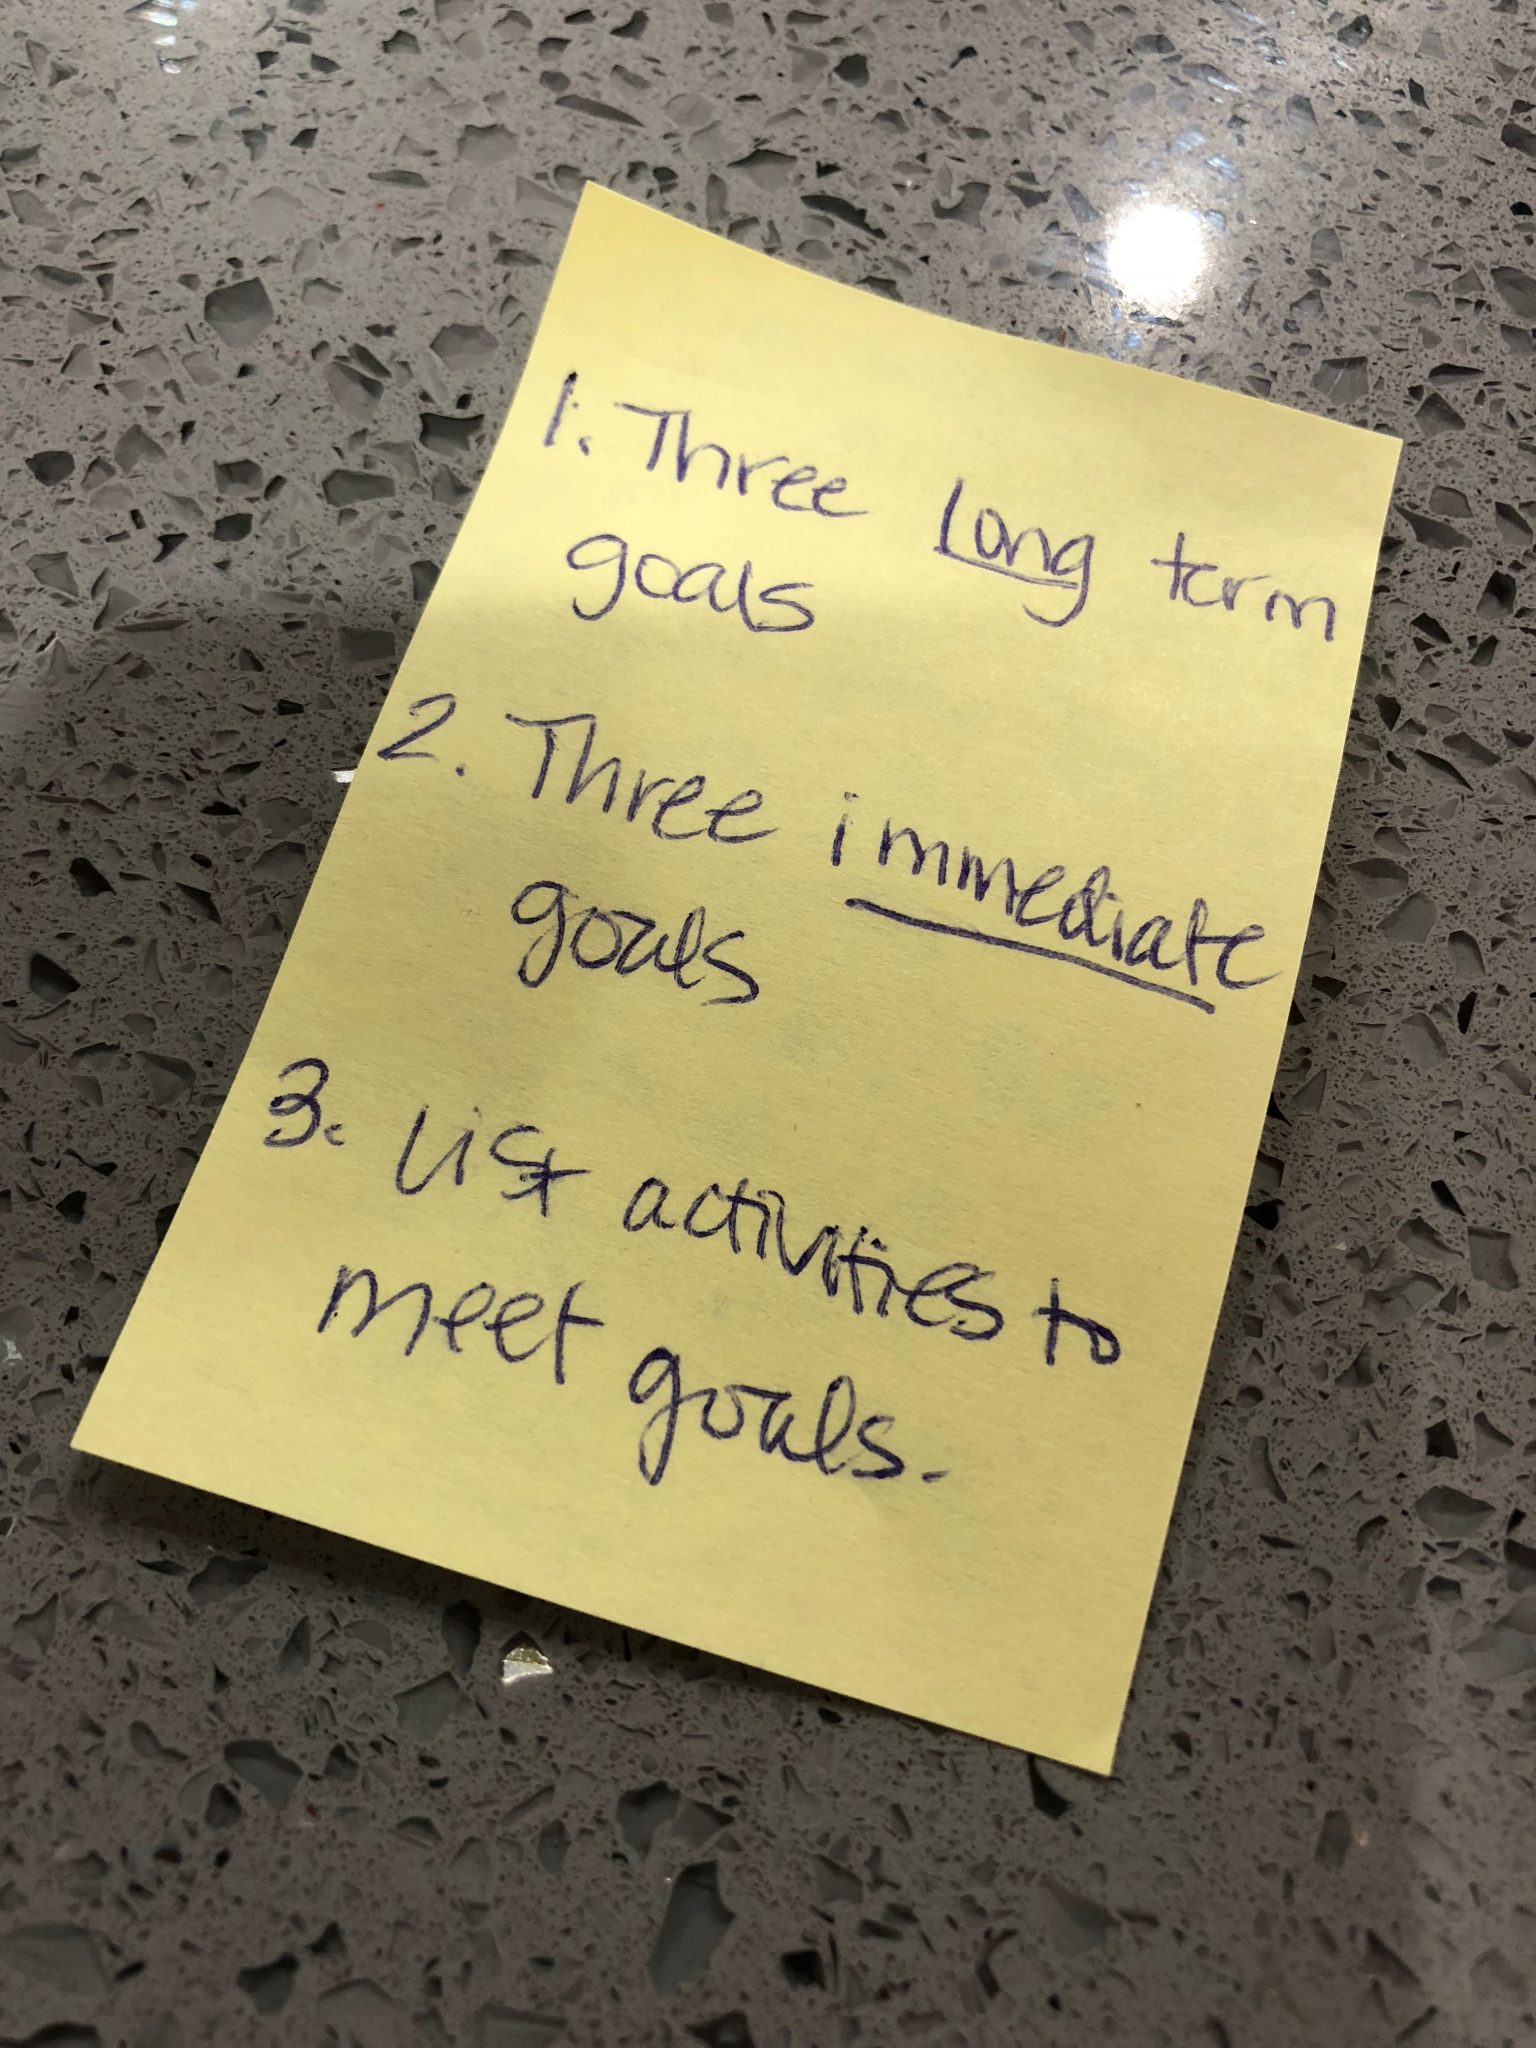 1. Three Long term
goals
2. Three immediate
goals
3. List activities to
meet goals.